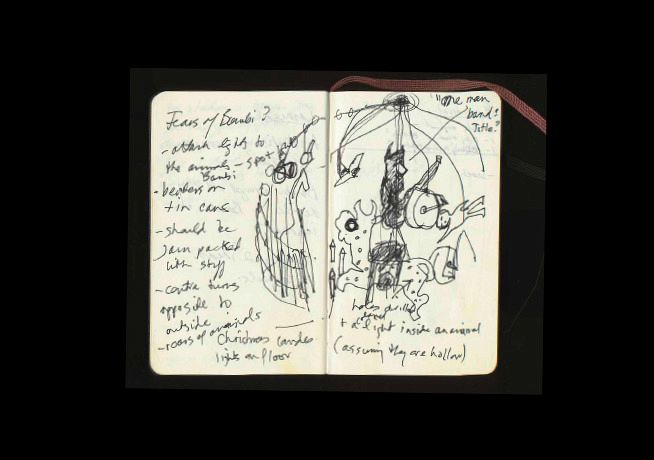 Tears of Bambi?
- attach lights to
the animals - spot
Bambi
- beaters on
tin cans
- should be
jam packed
with stuff
- centre turns
opposite to
outside
- roars of animals
Christmas candes
lights on floor
"One man
band?
Title?
holes drilled
+ a light inside an animal
(assuming they are hollow)